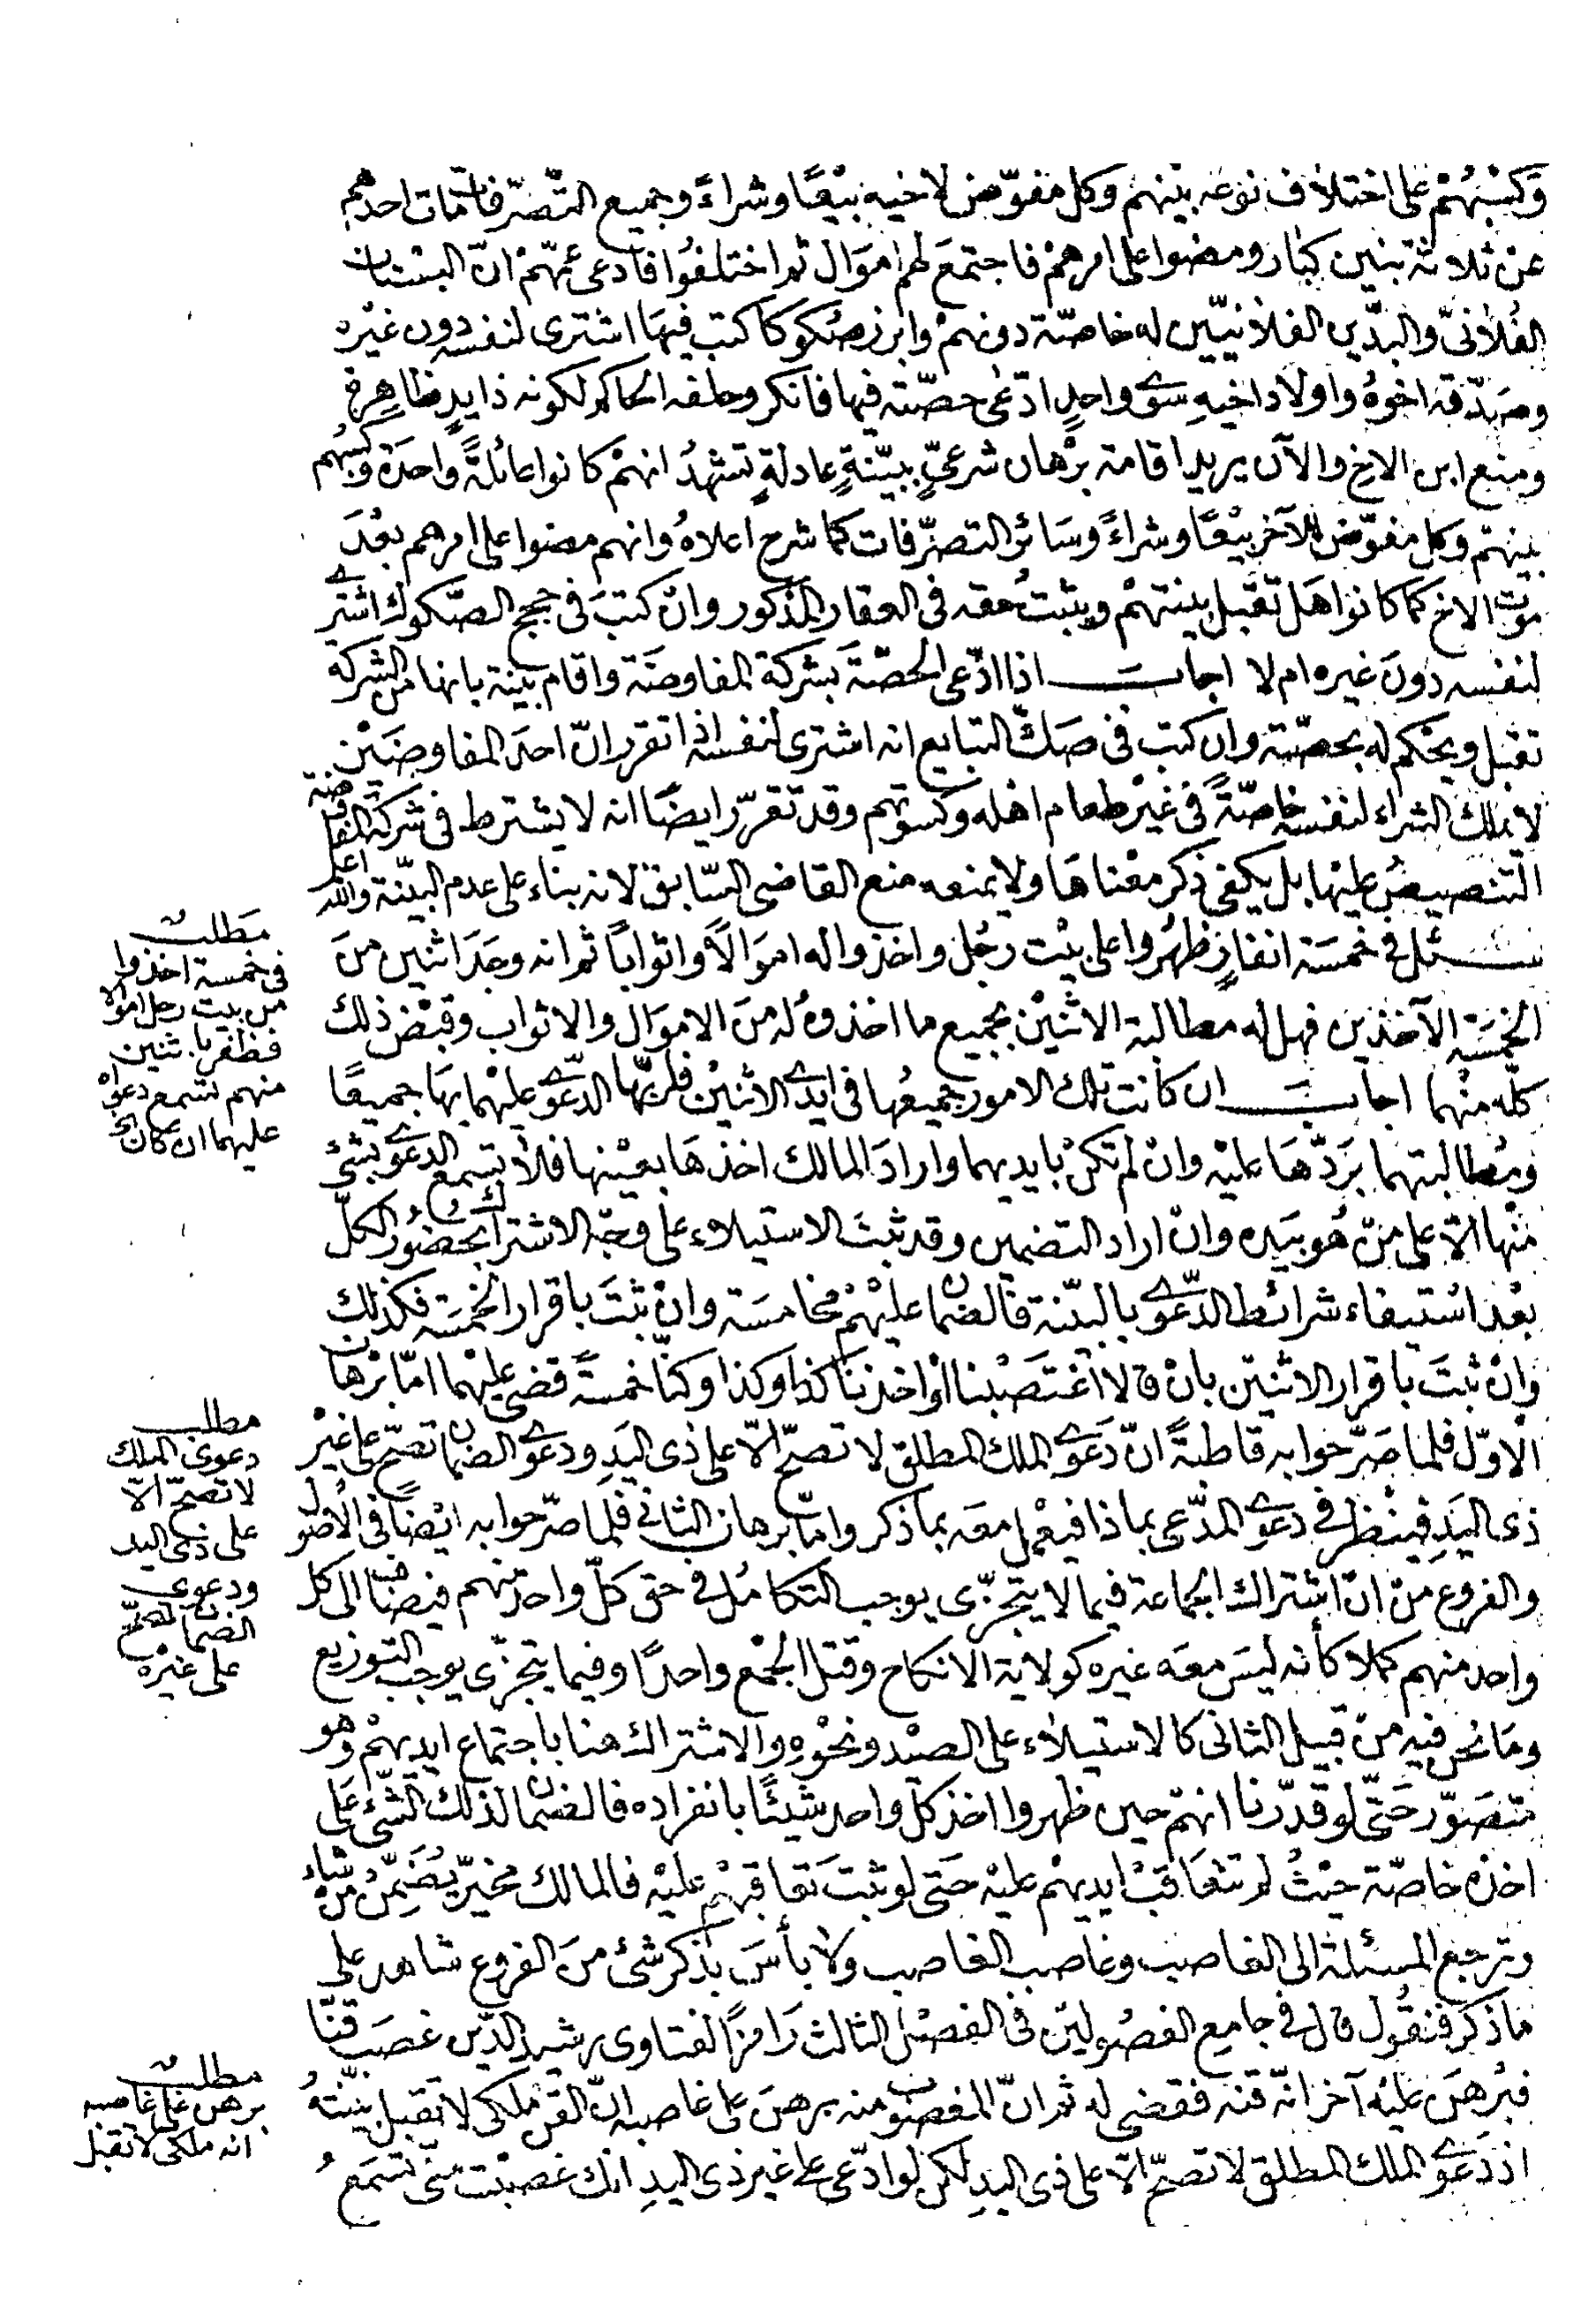 وكسبهم على اختلاف نوعه بينهم وكل مفوّض لاخيه بيعًا وشراءً وجميع التصرّفات مات احدهم
عن ثلاثة بنين كبار ومضوا على امرهم فاجتمع لهم اموال ثم اختلفوا فادعى عمّهم انّ البستان
الفلانىّ والبدّين الفلانيّين له خاصّة دونهم وابرز صكوكا كتب فيها اشترى لنفسه دون غيره
وصدّقه اخوه واولاد اخيه سوى واحدٍ ادّعى حصّته فيها فانكر وحلفه الحاكم لكونه ذا يدٍ ظاهرة
ومنع ابن الاخ والآن يريد اقامة برهان شرعىّ ببيّنةٍ عادلةٍ تشهد انهم كانوا عائلةً واحدة وكسبهم
بينهم وكل مفوّض للآخر بيعًا وشراءً وسائر التصرّفات كما شرح اعلاه وانهم مضوا على امرهم بعد
موت الاخ كما كانوا هل تقبل بينتهم ويثبت حقه فى العقار المذكور وان كتب فى حجج الصكوك اشترى
لنفسه دون غيره ام لا اجاب اذا ادّعى الحصّة بشركة المفاوضة واقام بينة بانها من الشركة
تقبل ويحكم له بحصّته وان كتب فى صك التبايع انه اشترى لنفسه اذ تقرر انّ احد المفاوضين
لا يملك الشراء لنفسه خاصّةً فى غير طعام اهله وكسوتهم وقد تقرّر ايضا انه لا يشترط فى شركة المفاوضة
التنصيص عليها بل يكفى ذكر معناها ولا يمنعه منع القاضى السّابق لانه بناء على عدم البيّنة والله اعلم
سئل فى خمسة انفارٍ ظهروا على بيت رجل واخذوا له اموالًا واثوابًا ثم انه وجد اثنين من
الخمسة الآخذين فهل له مطالبة الاثنين بجميع ما اخذوه له من الاموال والاثواب وقبض ذلك
كلّه منهما اجاب ان كانت تلك الامور جميعها فى ايدى الاثنين فلربّها الدّعوى عليهما بها جميعًا
ومطالبتهما بردّها عليه وان لم تكن بايديهما واراد المالك اخذها بعينها فلا تسمع الدعوى بشئ
منها الّا على من هو بيده وان اراد التضمين وقد ثبت الاستيلاء على وجه الاشتراك بحضور الكلّ
بعد استيفاء شرائط الدّعوى بالبيّنة فالضمان عليهم مخامسة وان ثبت باقرار الخمسة فكذلك
وان ثبت باقرار الاثنين بان قالا اغتصبنا او اخذنا كذا وكذا وكنّا خمسةً قضى عليهما امّا برهان
الاوّل فلما صرّحوا به قاطبةً انّ دعوى الملك المطلق لا تصحّ الّا على ذى اليد ودعوى الضمان تصحّ على غير
ذى اليد فينظر فى دعوى المدّعى بماذا فيعمل معه بما ذكر وامّا برهان الثانى فلما صرّحوا به ايضًا فى الاصول
والفروع من انّ اشتراك الجماعة فيما لا يتجزّى يوجب التكامل فى حق كلّ واحد منهم فيضاف الى كل
واحد منهم كملا كأنه ليس معه غيره كولاية الانكاح وقتل الجمع واحدًا وفيما يتجزّى يوجب التوزيع
وما نحن فيه من قبيل الثانى كالاستيلاء على الصيد ونحوه والاشتراك هنا باجتماع ايديهم وهو
متصوّر حتّى لو قدّرنا انهم حين ظهروا اخذ كلّ واحد شيئًا بانفراده فالضمان لذلك الشئ على
اخذه خاصّة حيث لم تتعاقب ايديهم عليه حتى لو ثبت تعاقبهم عليه فالمالك مخيّر يضمّن من شاء
وترجع المسئلة الى الغاصب وغاصب الغاصب ولا بأس بذكر شئ من الفروع شاهد على
ما ذكر فنقول قال فى جامع الفصولين فى الفصل الثالث رامزًا لفتاوى رشيد الدّين غصب قنًّا
فبرهن عليه آخر انّه قنه فقضى له ثم انّ المغصوب منه برهن على غاصبه انّ القن ملكى لا تقبل بيّنته
اذ دعوى الملك المطلق لا تصحّ الّا على ذى اليد لكن لو ادّعى على غير ذى اليد انك غصبت منى تسمع
مطلب
فى خمسة اخذوا
من بيت رجل اموالا
فظفر باثنين
منهم تسمع دعواه
عليهما ان كان
مطلب
دعوى الملك
لا تصحّ الّا
على ذى اليد
ودعوى
الضمان تصحّ
على غيره
مطلب
برهن على غاصبه
انه ملكى لا تقبل